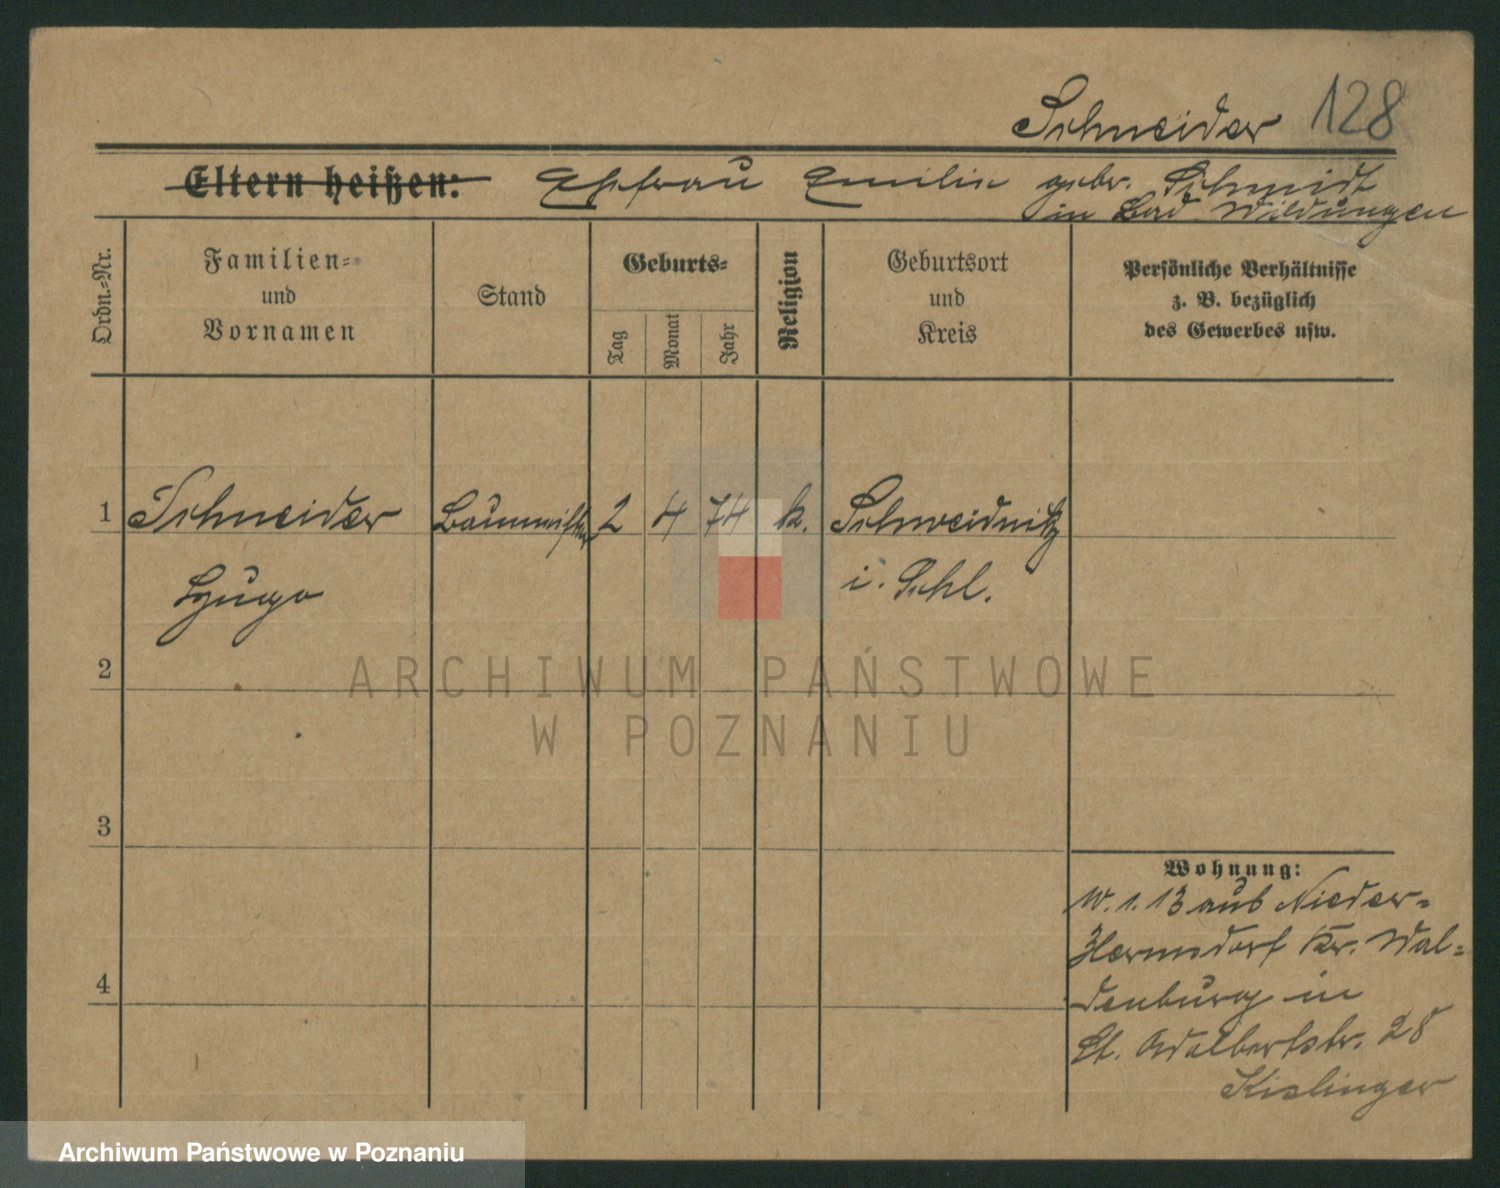 Schneider 128
Eltern heißen: Ehefrau Emilie gebr. Schmidt
in Bad Wildungen
Ordn.-Nr.
Familien-
und
Vornamen
Stand
Geburts-
Tag
Monat
Jahr
Religion
Geburtsort
und
Kreis
Persönliche Verhältnisse
z. B. bezüglich
des Gewerbes usw.
1 Schneider Baumeister 2 4 74 k. Schweidnitz
Hugo i. Schl.
2
ARCHIWUM PAŃSTWOWE
W POZNANIU
3
Wohnung:
W. 1. 13 aus Nieder-
Hermsdorf Kr. Wal-
4
denburg in
St. Adalbertstr. 28
Kislinger
Archiwum Państwowe w Poznaniu